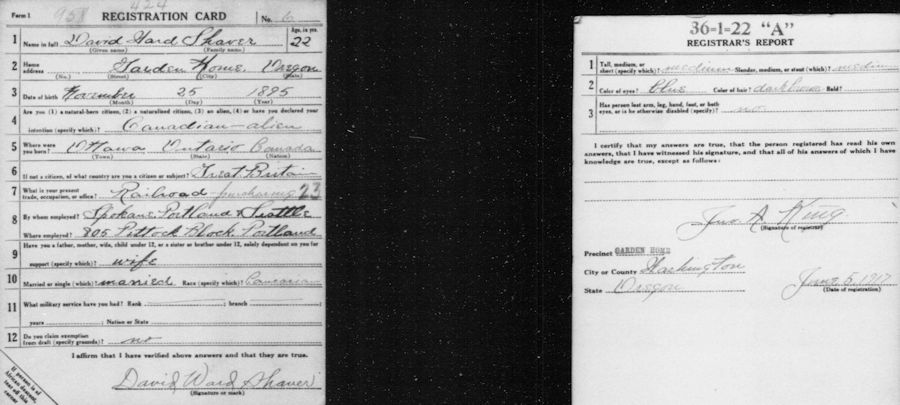 Form 1 951 424 REGISTRATION CARD No. 6
1 Name in full David Ward Shaver Age, in yrs. 22
(Given name) (Family name)
2 Home address Garden Home, Oregon
(No.) (Street) (City) (State)
3 Date of birth November 25 1895
(Month) (Day) (Year)
4 Are you (1) a natural-born citizen, (2) a naturalized citizen, (3) an alien, (4) or have you declared your
intention (specify which)? Canadian-alien
5 Where were you born? Ottawa Ontario Canada
(Town) (State) (Nation)
6 If not a citizen, of what country are you a citizen or subject? Great Britain
7 What is your present trade, occupation, or office? Railroad-purchasing 23
8 By whom employed? Spokane, Portland & Seattle
Where employed? 805 Pittock Block Portland
9 Have you a father, mother, wife, child under 12, or a sister or brother under 12, solely dependent on you for
support (specify which)? wife
10 Married or single (which)? married Race (specify which)? Caucasian
11 What military service have you had? Rank ; branch ;
years ; Nation or State
12 Do you claim exemption from draft (specify grounds)? no
I affirm that I have verified above answers and that they are true.
David Ward Shaver
(Signature or mark)
If person is of
African descent,
tear off this
corner
36=1=22 "A"
REGISTRAR'S REPORT
1 Tall, medium, or short (specify which)? medium Slender, medium, or stout (which)? medium
2 Color of eyes? blue Color of hair? dark brown Bald?
3 Has person lost arm, leg, hand, foot, or both
eyes, or is he otherwise disabled (specify)? no
I certify that my answers are true, that the person registered has read his own
answers, that I have witnessed his signature, and that all of his answers of which I have
knowledge are true, except as follows:
Jno A. King
(Signature of registrar)
Precinct GARDEN HOME
City or County Washington
State Oregon June 5, 1917
(Date of registration)